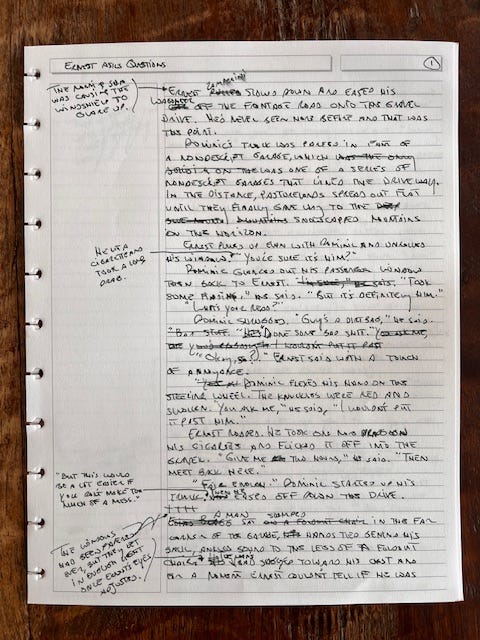 ERNEST ASKS QUESTIONS
1
THE MORNING SUN
WAS CAUSING THE
WINDSHIELD TO
GLARE UP.
ERNEST SLOWED DOWN AND EASED HIS
WAGONEER OFF THE FRONTAGE ROAD ONTO THE GRAVEL
DRIVE. HE'D NEVER BEEN HERE BEFORE AND THAT WAS
THE POINT.
DOMINIC'S TRUCK WAS PARKED IN FRONT OF
A NONDESCRIPT GARAGE, WHICH WAS THE ONLY
ON THE WAS ONE OF A SERIES OF
NONDESCRIPT GARAGES THAT LINED THE DRIVEWAY.
IN THE DISTANCE, PASTURELANDS SPREAD OUT FLAT
UNTIL THEY FINALLY GAVE WAY TO THE
MOUNTAINS SNOWCAPPED MOUNTAINS
ON THE HORIZON.
HE LIT A
CIGARETTE AND
TOOK A LONG
DRAG.
ERNEST PULLED UP EVEN WITH DOMINIC AND UNROLLED
HIS WINDOW. "YOU'RE SURE IT'S HIM?"
DOMINIC GLANCED OUT HIS PASSENGER WINDOW
THEN BACK TO ERNEST. "I'M SURE," HE SAID. "TOOK
SOME " HE SAID. "BUT IT'S DEFINITELY HIM."
"WHAT'S YOUR READ?"
DOMINIC SHRUGGED. "GUY'S A DIRTBAG," HE SAID.
"BAD STUFF. "HE'S DONE SOME BAD SHIT. "YOU ASK ME,
I WOULDN'T PUT IT PAST
"OKAY, SO?" ERNEST SAID WITH A TOUCH
OF ANNOYANCE.
DOMINIC FLEXED HIS HAND ON THE
STEERING WHEEL. THE KNUCKLES WERE RED AND
SWOLLEN. "YOU ASK ME," HE SAID, "I WOULDN'T PUT
IT PAST HIM."
ERNEST NODDED. HE TOOK ONE MORE DRAG ON
HIS CIGARETTE AND FLICKED IT OFF INTO THE
GRAVEL. "GIVE ME TWO HOURS," HE SAID. "THEN
MEET BACK HERE."
"BUT THIS WOULD
BE A LOT EASIER IF
YOU DON'T MAKE TOO
MUCH OF A MESS."
"FAIR ENOUGH." DOMINIC STARTED UP HIS
TRUCK, THEN HE EASED OFF DOWN THE DRIVE.
THE WINDOWS
HAD BEEN PAPERED
OVER, BUT THEY LET
IN ENOUGH LIGHT
ONCE ERNEST'S EYES
ADJUSTED.
A MAN SLUMPED
SAT ON A FOLDOUT CHAIR IN THE FAR
CORNER OF THE GARAGE, HANDS TIED BEHIND HIS
BACK, ANKLES BOUND TO THE LEGS OF A FOLDOUT
CHAIR. HIS HEAD SAGGED TOWARD HIS CHEST AND
FOR A MOMENT ERNEST COULDN'T TELL IF HE WAS